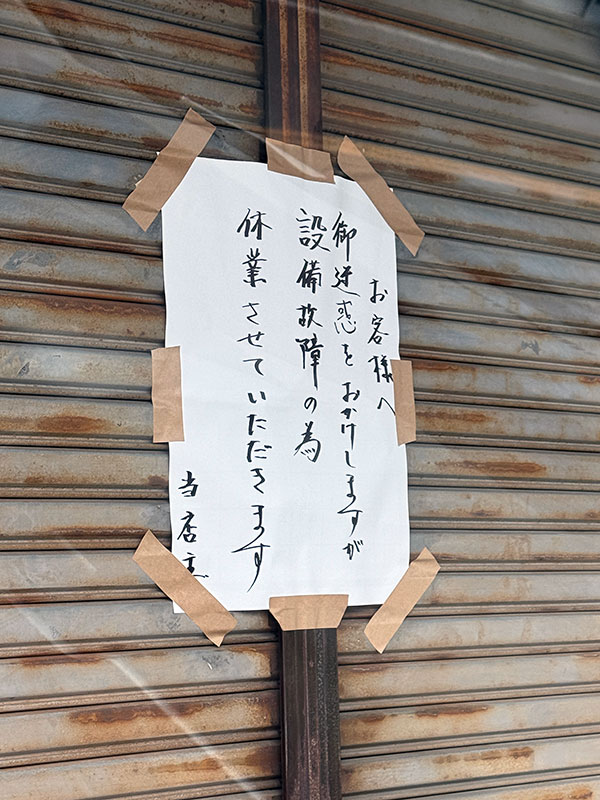 お客様へ
御迷惑をおかけしますが
設備故障の為
休業させていただきます
当店主